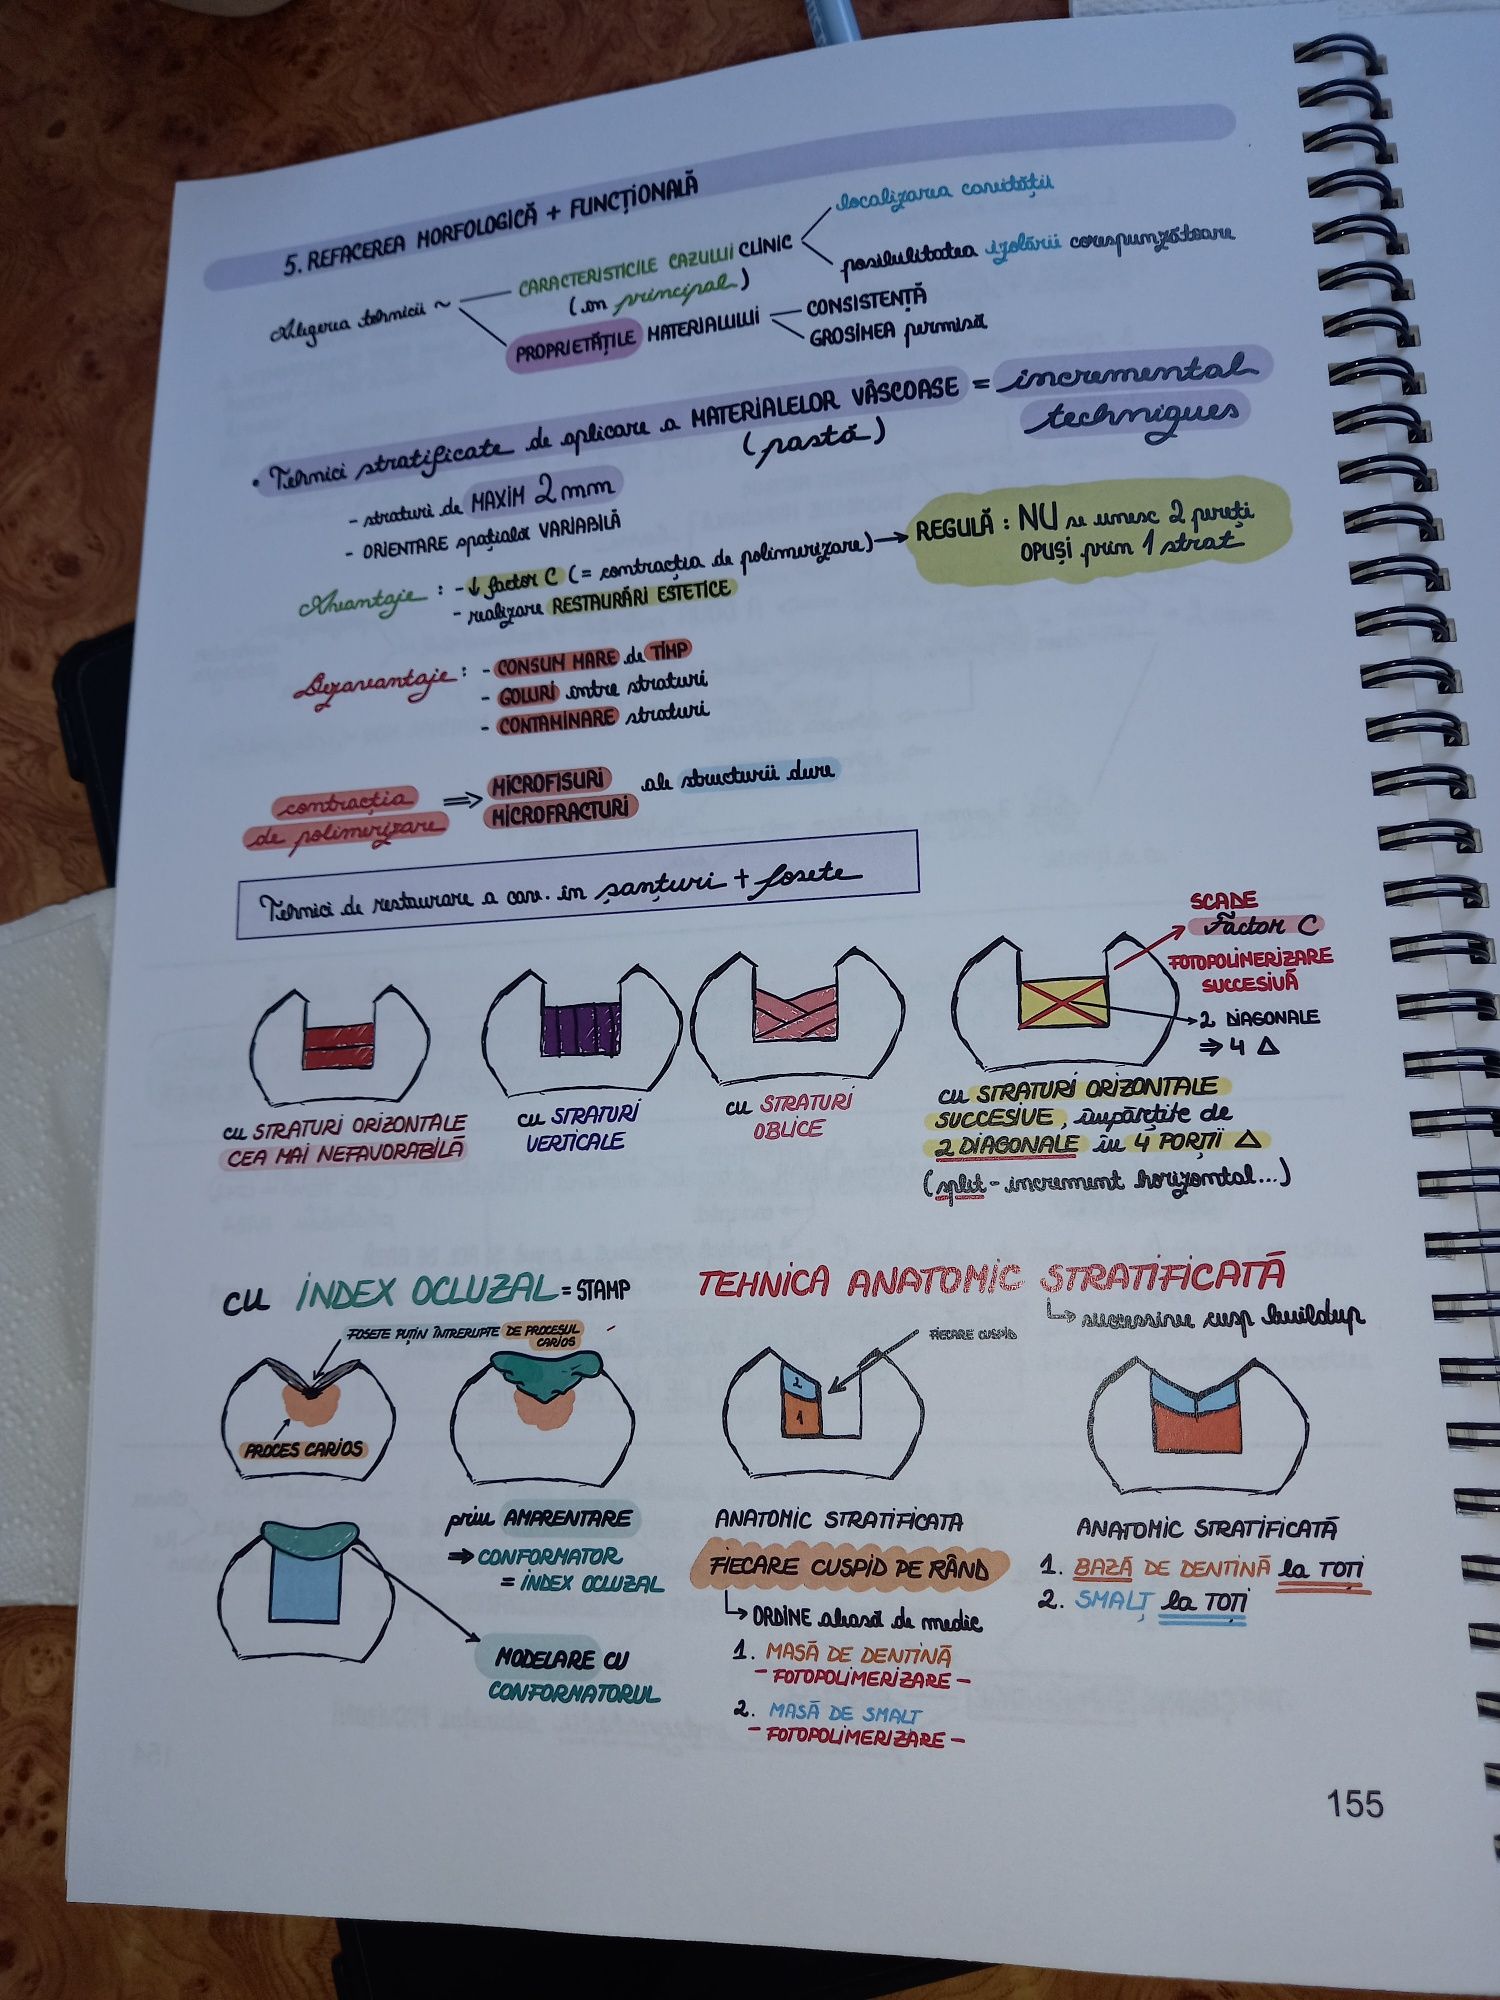 5. REFACEREA MORFOLOGICĂ + FUNCȚIONALĂ
Alegerea tehnicii ~
CARACTERISTICILE CAZULUI CLINIC
(în principal)
localizarea cavității
posibilitatea izolării corespunzătoare
PROPRIETĂȚILE MATERIALULUI
CONSISTENȚĂ
GROSIMEA permisă
• Tehnici stratificate de aplicare a MATERIALELOR VÂSCOASE = incremental
(pastă) techniques
- straturi de MAXIM 2mm
- ORIENTARE spațială VARIABILĂ
Avantaje : - ↓ factor C (= contracția de polimerizare) → REGULĂ : NU se unesc 2 pereți
OPUȘI prin 1 strat
- realizare RESTAURĂRI ESTETICE
Dezavantaje : - CONSUM MARE de TIMP
- GOLURI între straturi
- CONTAMINARE straturi
contracția
de polimerizare
⇒ MICROFISURI ale structurii dure
MICROFRACTURI
Tehnici de restaurare a cav. în șanțuri + fosete
SCADE
Factor C
FOTOPOLIMERIZARE
SUCCESIVĂ
2 DIAGONALE
⇒ 4 △
cu STRATURI ORIZONTALE
CEA MAI NEFAVORABILĂ
cu STRATURI
VERTICALE
cu STRATURI
OBLICE
cu STRATURI ORIZONTALE
SUCCESIVE, împărțite de
2 DIAGONALE în 4 PORȚII △
(split - increment horizontal...)
cu INDEX OCLUZAL = STAMP
FOSETE PUȚIN ÎNTRERUPTE DE PROCESUL
CARIOS
PROCES CARIOS
prin AMPRENTARE
⇒ CONFORMATOR
= INDEX OCLUZAL
MODELARE CU
CONFORMATORUL
TEHNICA ANATOMIC STRATIFICATĂ
↳ successive cusp buildup
FIECARE CUSPID
2
1
ANATOMIC STRATIFICATA
FIECARE CUSPID PE RÂND
↳ ORDINE aleasă de medic
1. MASĂ DE DENTINĂ
- FOTOPOLIMERIZARE -
2. MASĂ DE SMALȚ
- FOTOPOLIMERIZARE -
ANATOMIC STRATIFICATĂ
1. BAZĂ DE DENTINĂ la TOȚI
2. SMALȚ la TOȚI
155